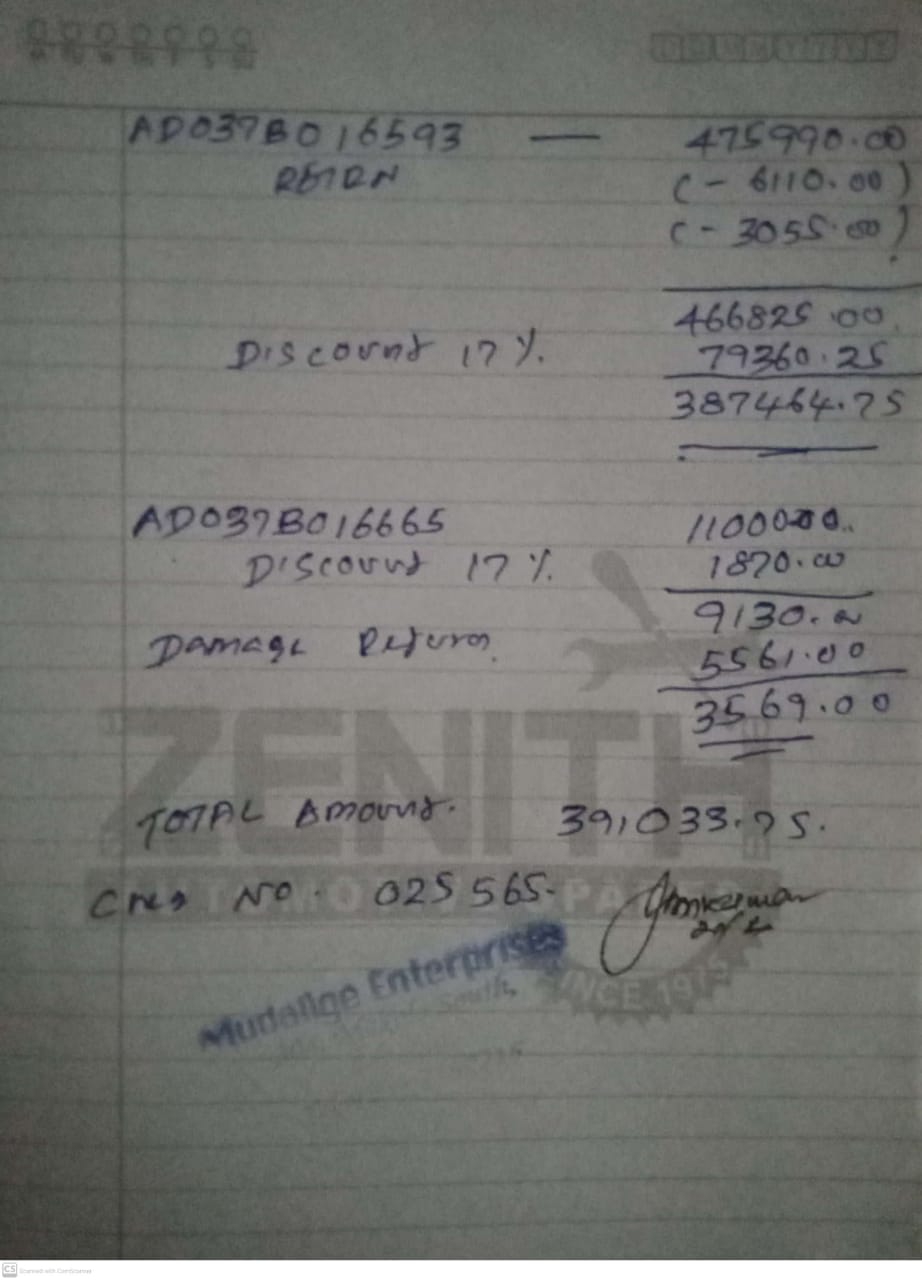 AD037B016593 — 475990.00
RETRN (- 6110.00)
(- 3055.00)
466825.00
Discount 17% 79360.25
387464.75
AD037B016665 11000.00
Discount 17% 1870.00
9130.00
Damage Return 5561.00
3569.00
TOTAL Amount. 391033.75.
No. 025565.
ZENITH
SINCE 1975
Mudalige Enterprises
South,
CS Scanned with CamScanner